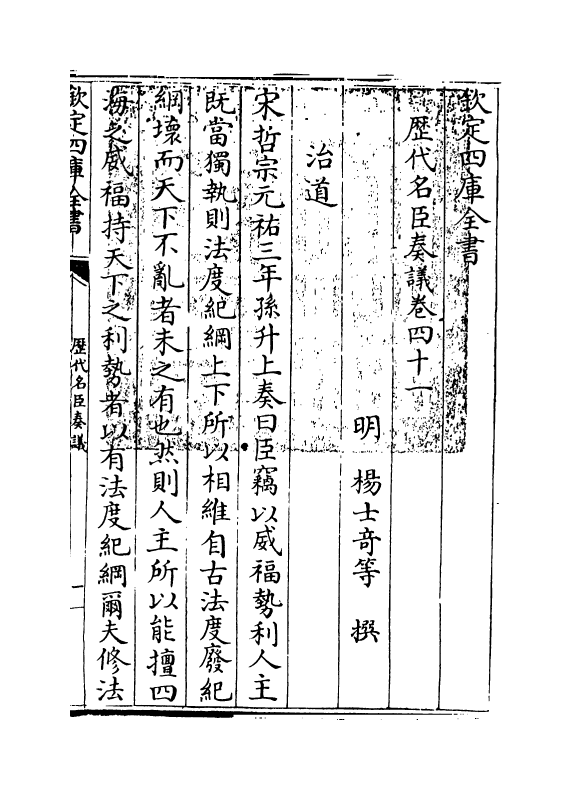 欽定四庫全書
歴代名臣奏議卷四十一
明 楊士奇等 撰
治道
宋哲宗元祐三年孫升上奏曰臣竊以威福勢利人主
既當獨執則法度紀綱上下所以相維自古法度廢紀
綱壊而天下不亂者未之有也然則人主所以能擅四
海之威福持天下之利勢者以有法度紀綱爾夫修法
欽定四庫全書
歴代名臣奏議
一